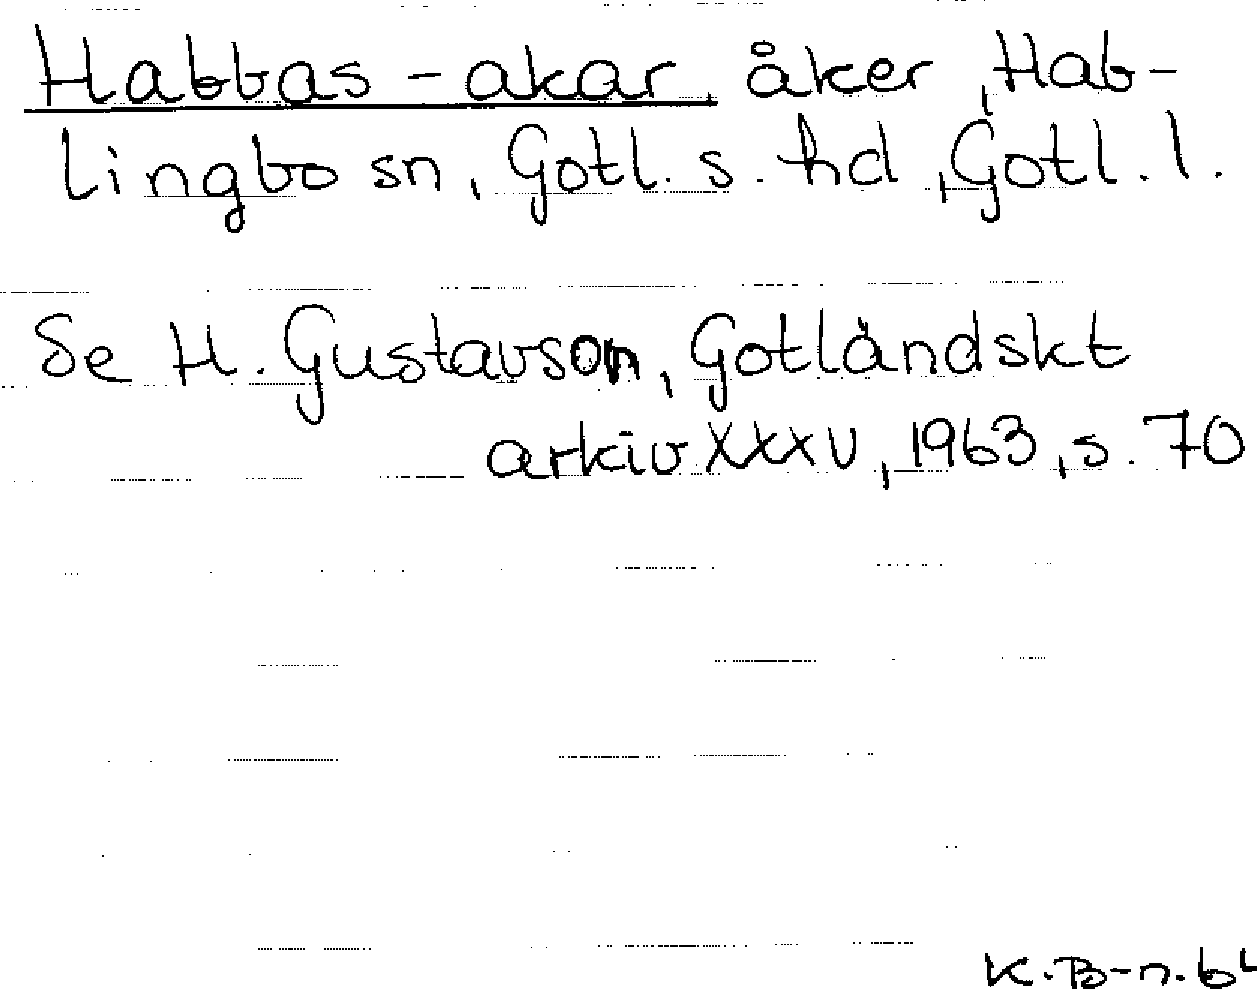 Habbas-akar, åker, Hab-
lingbo sn, Gotl. s. hd, Gotl. l.
Se H. Gustavson, Gotländskt
arkiv XXXV, 1963, s. 70
K. B-n.